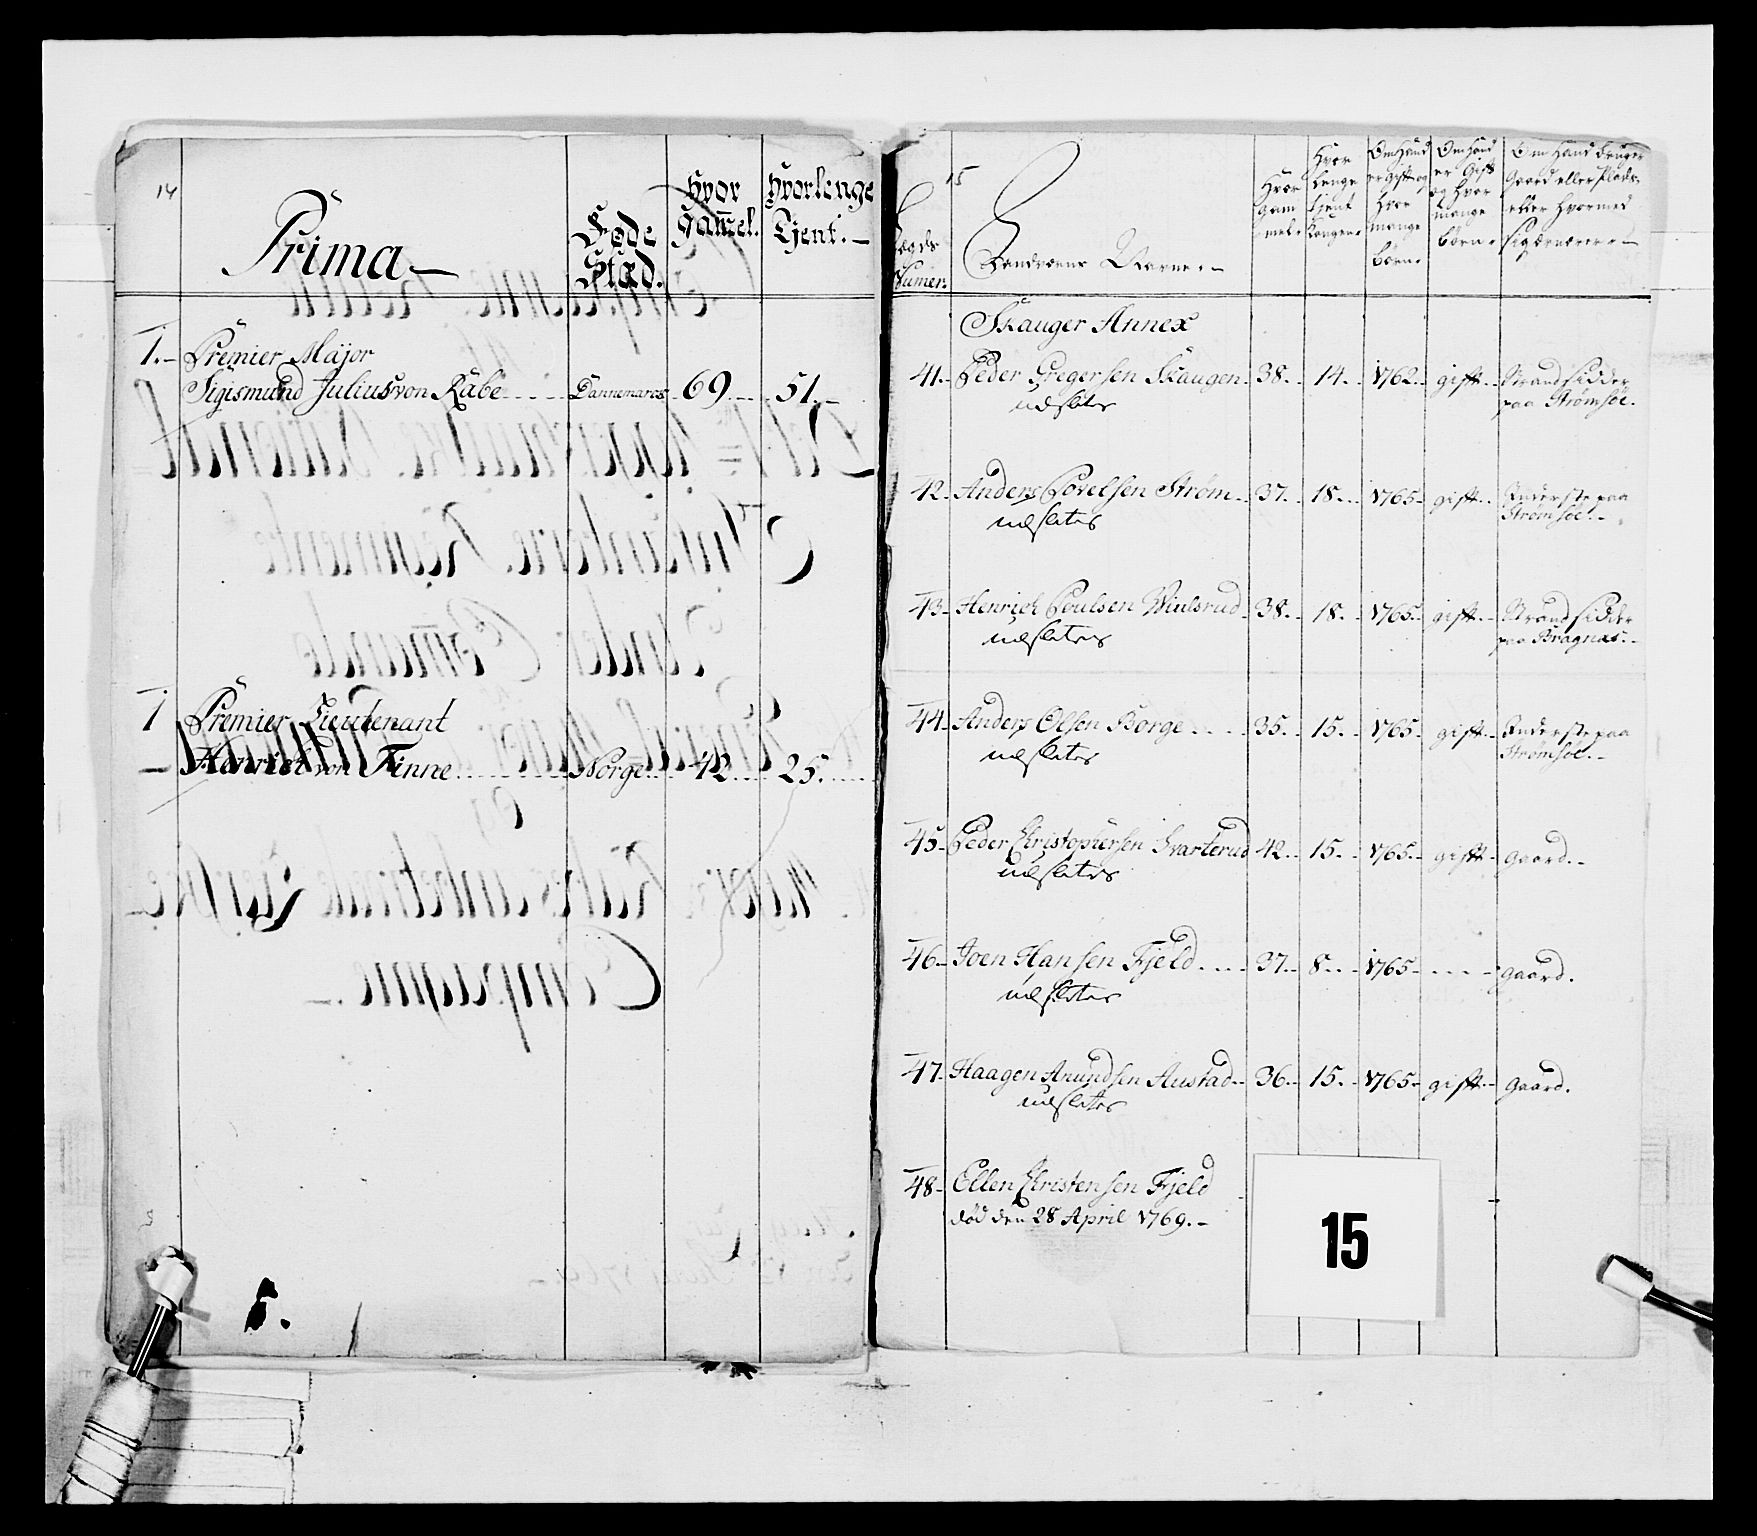 14
Prima
Føde Stæd.
Hvor gam̄el.
Hvorlenge Tjent.
1. Premier Major
Sigismund Julius von Råbe Dannemarck 69. 51.
1 Premier Lieutenant
Henrich von Finne Norge 42 25.
5.
15
Lægds Numer.
Landværns Navne.
Hvor gammel.
Hvor lenge tient Kongen.
Om Hand er gift og hvor mange børn.
Om Hand er gift og hvor mange børn.
Om Hand bruger Gaard eller Plads, eller hvormed sig ernærer.
Skauger Annex
41. Peder Gregersen Skaugen 38. 14. 1762. gift. Strandsidder
udslettes paa Strømsøe.
42. Anders Povelsen Strøm 37. 18. 1765. gift. Inderste paa
udslettes Strømsøe.
43. Henrich Poulsen Wiulsrud 38. 18. 1765. gift. Strandsidder
udslettes paa Bragnæs.
44. Anders Olsen Borge 35. 15. 1765. gift. Inderste paa
udslettes Strømsøe.
45. Peder Christophersen Svarterud 42. 15. 1765. gift. gaard.
udslettes
46. Joen Hansen Fjeld 37. 8. 1765. gaard.
udslettes
47. Haagen Anundsen Austad 36. 15. 1765. gift. gaard.
udslettes
48. Ellen Christensen Fjeld
død den 28 April 1769.
15